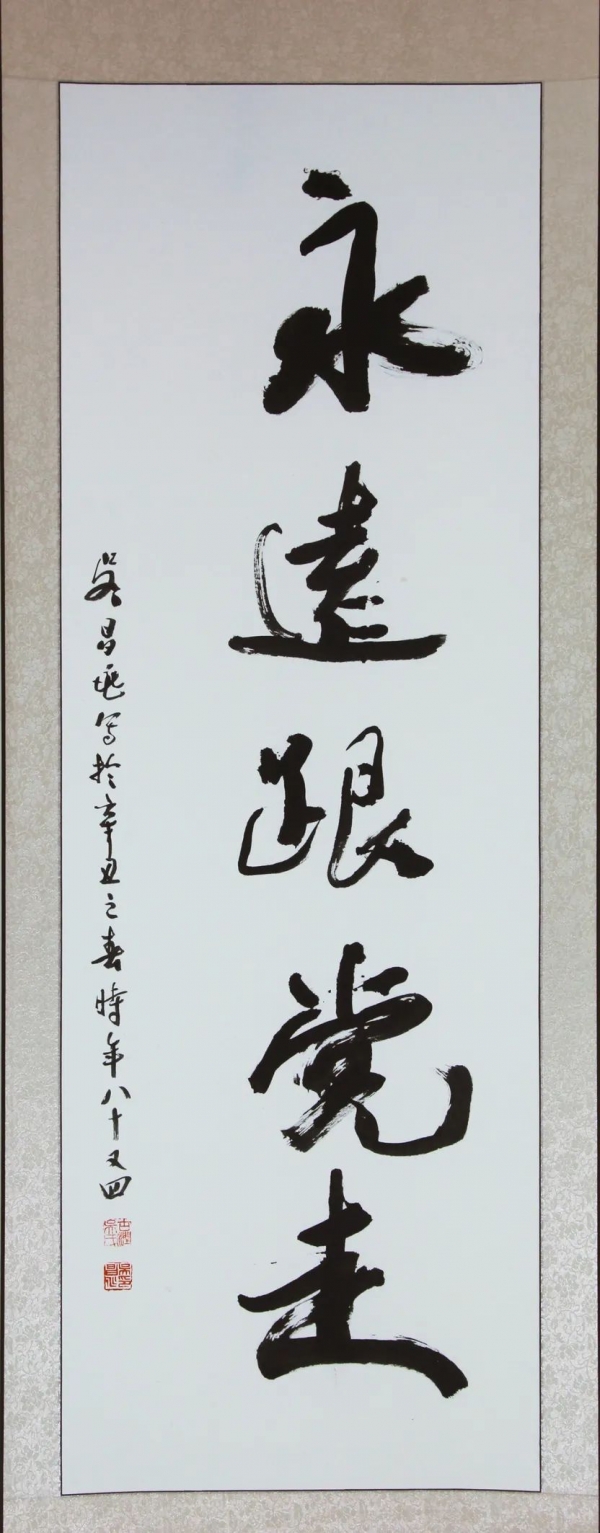 永遠跟党走
吴昌兆写於辛丑之春時年八十又四